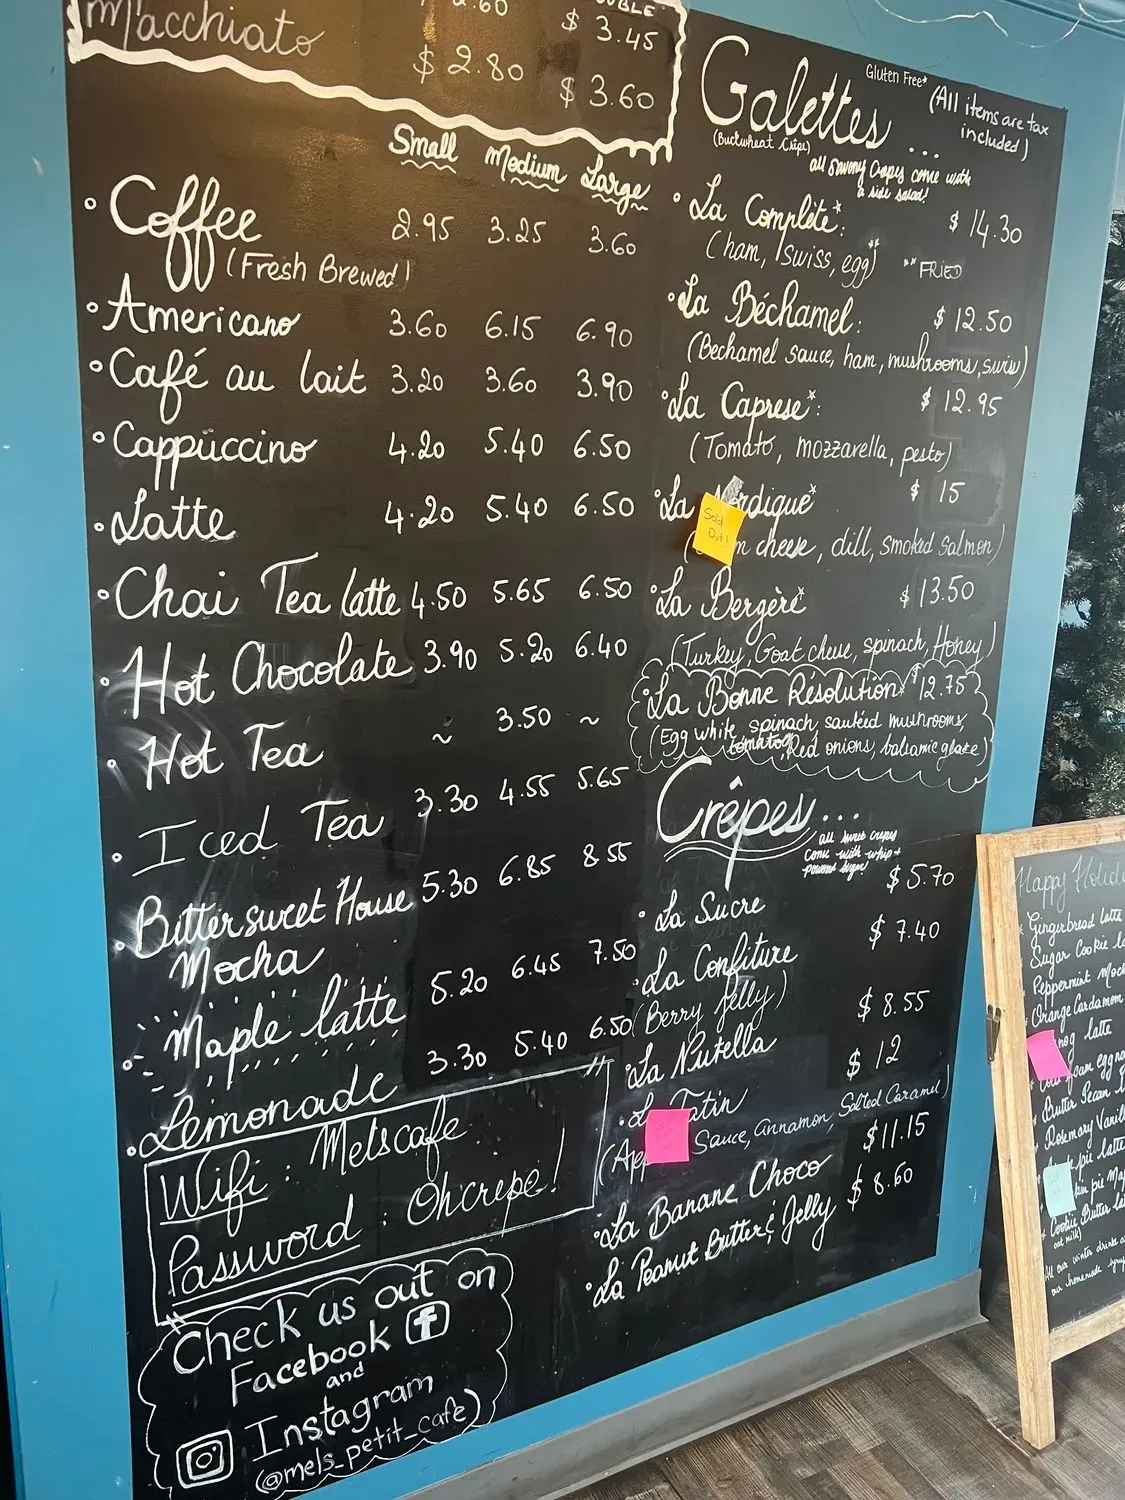 Macchiato $ 2.80 $ 3.60
2.60 $ 3.45
Small Medium Large
Coffee 2.95 3.25 3.60
(Fresh Brewed)
Americano 3.60 6.15 6.90
Café au lait 3.20 3.60 3.90
Cappuccino 4.20 5.40 6.50
Latte 4.20 5.40 6.50
Chai Tea latte 4.50 5.65 6.50
Hot Chocolate 3.90 5.20 6.40
Hot Tea ~ 3.50 ~
Iced Tea 3.30 4.55 5.65
Bittersweet House 5.30 6.85 8.55
Mocha
Maple latte 5.20 6.45 7.50
Lemonade 3.30 5.40 6.50
Wifi : Melscafe
Password : Ohcrepe!
Check us out on
Facebook f
and
Instagram
(@mels_petit_cafe)
Galettes...
Gluten Free*
(All items are tax
included)
(Buckwheat Crêpe)
all savory crepes come with
a side salad!
La Complète*: $ 14.30
(ham, swiss, egg**) **FRIED
La Béchamel: $ 12.50
(Bechamel sauce, ham, mushrooms, swiss)
La Caprese*: $ 12.95
(Tomato, mozzarella, pesto)
La rdique* $ 15
Sold
Out!
m cheese, dill, smoked salmon)
La Bergère* $ 13.50
(Turkey, Goat cheese, spinach, Honey)
La Bonne Résolution* $ 12.75
(Egg white, spinach, sautéed mushrooms,
tomatoes, Red onions, balsamic glaze)
Crêpes...
all sweet crepes
come with whip +
powdered sugar
La Sucre $ 5.70
La Confiture $ 7.40
(Berry Jelly)
La Nutella $ 8.55
Tatin $ 12
(App Sauce, cinnamon, Salted Caramel)
La Banane Choco $11.15
La Peanut Butter & Jelly $ 8.60
Happy Holid
Gingerbread latte
Sugar Cookie la
Peppermint Moc
Orange Cardamom
nog latte
foam eggno
Butter Pecan
Rosemary Vanill
pie latte
pie Ma
Cookie Butter la
oat milk)
All our winter drinks a
our homemade syrup